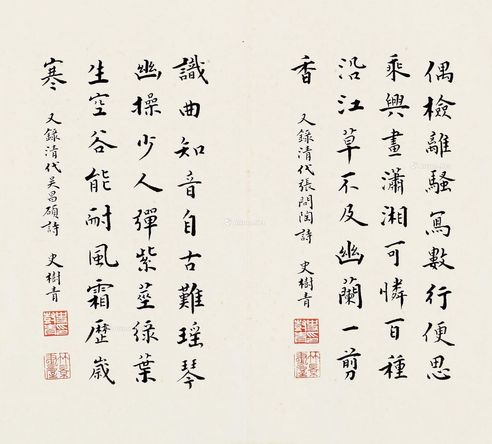 偶檢離騷寫數行便思
乘興畫瀟湘可憐百種
沿江草不及幽蘭一剪
香
又錄清代張問陶詩 史樹青
識曲知音自古難瑶琴
幽操少人彈紫莖綠葉
生空谷能耐風霜歷歲
寒
又錄清代吴昌碩詩 史樹青